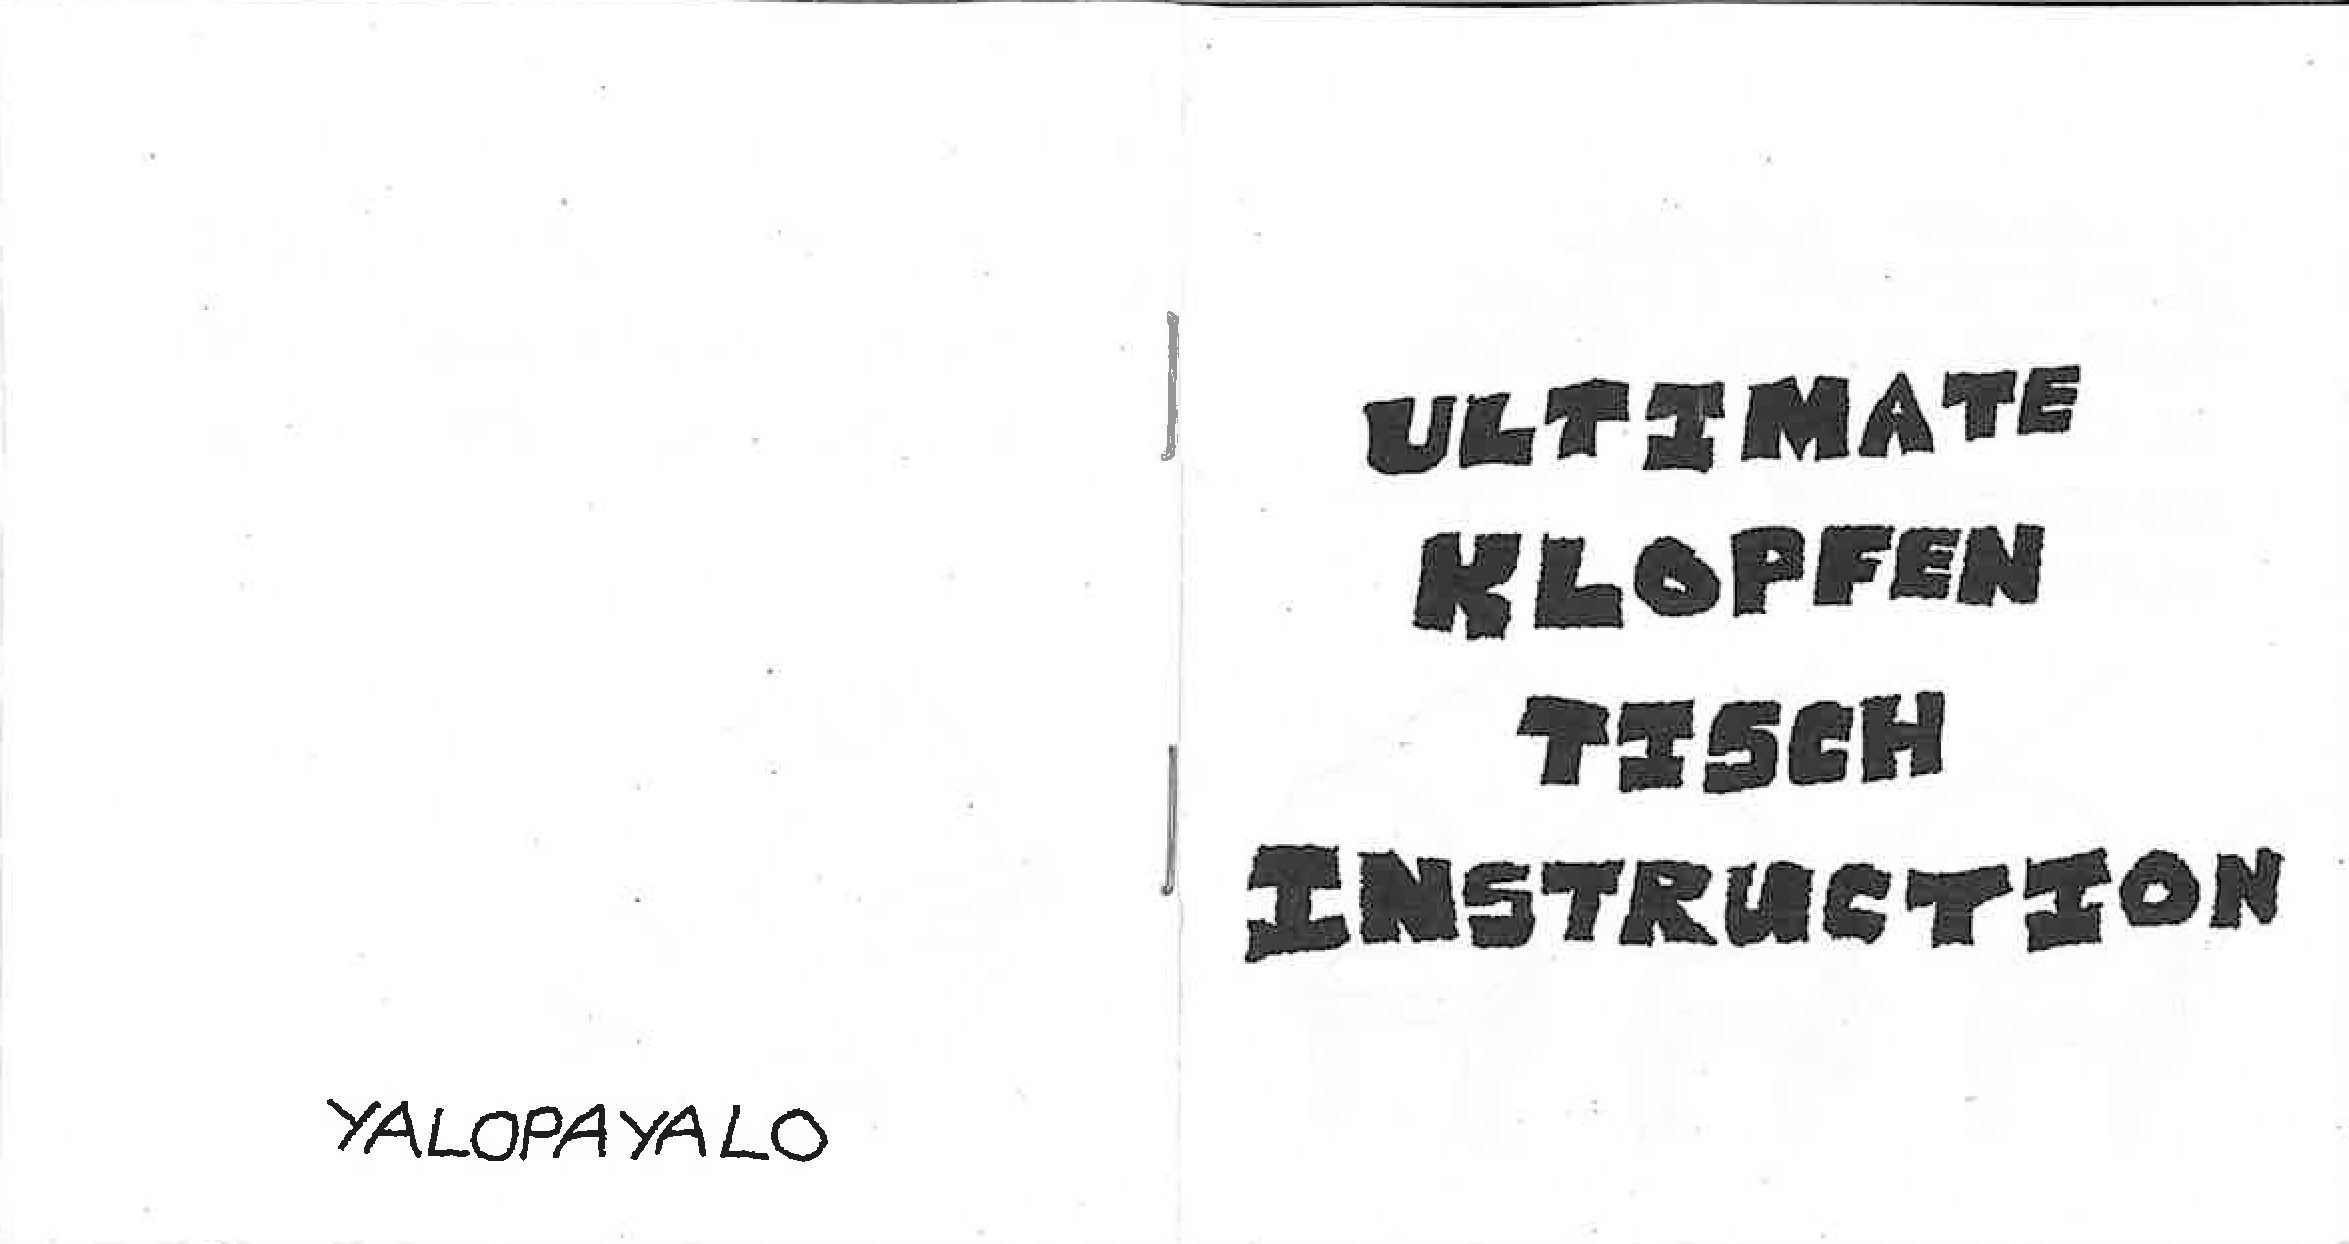 YALOPAYALO
ULTIMATE
KLOPFEN
TISCH
INSTRUCTION